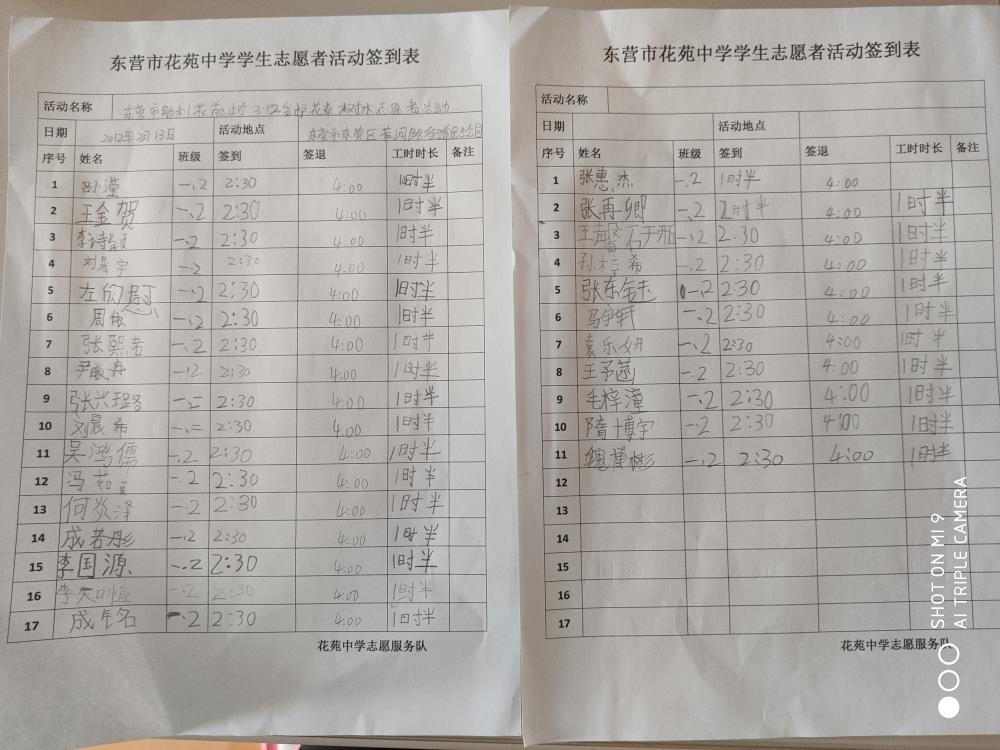 东营市花苑中学学生志愿者活动签到表
活动名称 东营市胜利花苑中学
日期 2012年3月13日 活动地点 东营市东营区黄河路
序号 姓名 班级 签到 签退 工时时长 备注
1 吕滢 一.2 2:30 4:00 1时半
2 王金贺 一.2 2:30 4:00 1时半
3 李诗颖 一.2 2:30 4:00 1时半
4 刘晟宇 一.2 2:30 4:00 1时半
5 左欣慰 一.2 2:30 4:00 1时半
6 周依 一.2 2:30 4:00 1时半
7 张熙若 一.2 2:30 4:00 1时半
8 尹 一.2 2:30 4:00 1时半
9 张兴璐 一.二 2:30 4:00 1时半
10 刘晨希 一.二 2:30 4:00 1时半
11 吴鸿儒 一.2 2:30 4:00 1时半
12 冯茹 一.2 2:30 4:00 1时半
13 何炎泽 一.2 2:30 4:00 1时半
14 成若彤 一.2 2:30 4:00 1时半
15 李国源 一.2 2:30 4:00 1时半
16 李 恒 一.2 2:30 4:00 1时半
17 成铭 一.2 2:30 4:00 1时半
花苑中学志愿服务队
东营市花苑中学学生志愿者活动签到表
活动名称
日期 活动地点
序号 姓名 班级 签到 签退 工时时长 备注
1 张惠杰 一.2 1时半 4:00
2 张再卿 一.2 2时半 4:00 1时半
3 王 石于 一.2 2:30 4:00 1时半
4 孙梓希 一.2 2:30 4:00 1时半
5 张东钰 一.2 2:30 4:00 1时半
6 冯宇轩 一.2 2:30 4:00 1时半
7 袁乐妍 一.2 2:30 4:00 1时半
8 王予菡 一.2 2:30 4:00 1时半
9 毛梓潼 一.2 2:30 4:00 1时半
10 隋博宇 一.2 2:30 4:00 1时半
11 魏博彬 一.2 2:30 4:00 1时半
12
13
14
15
16
17
花苑中学志愿服务队
SHOT ON MI 9
AI TRIPLE CAMERA